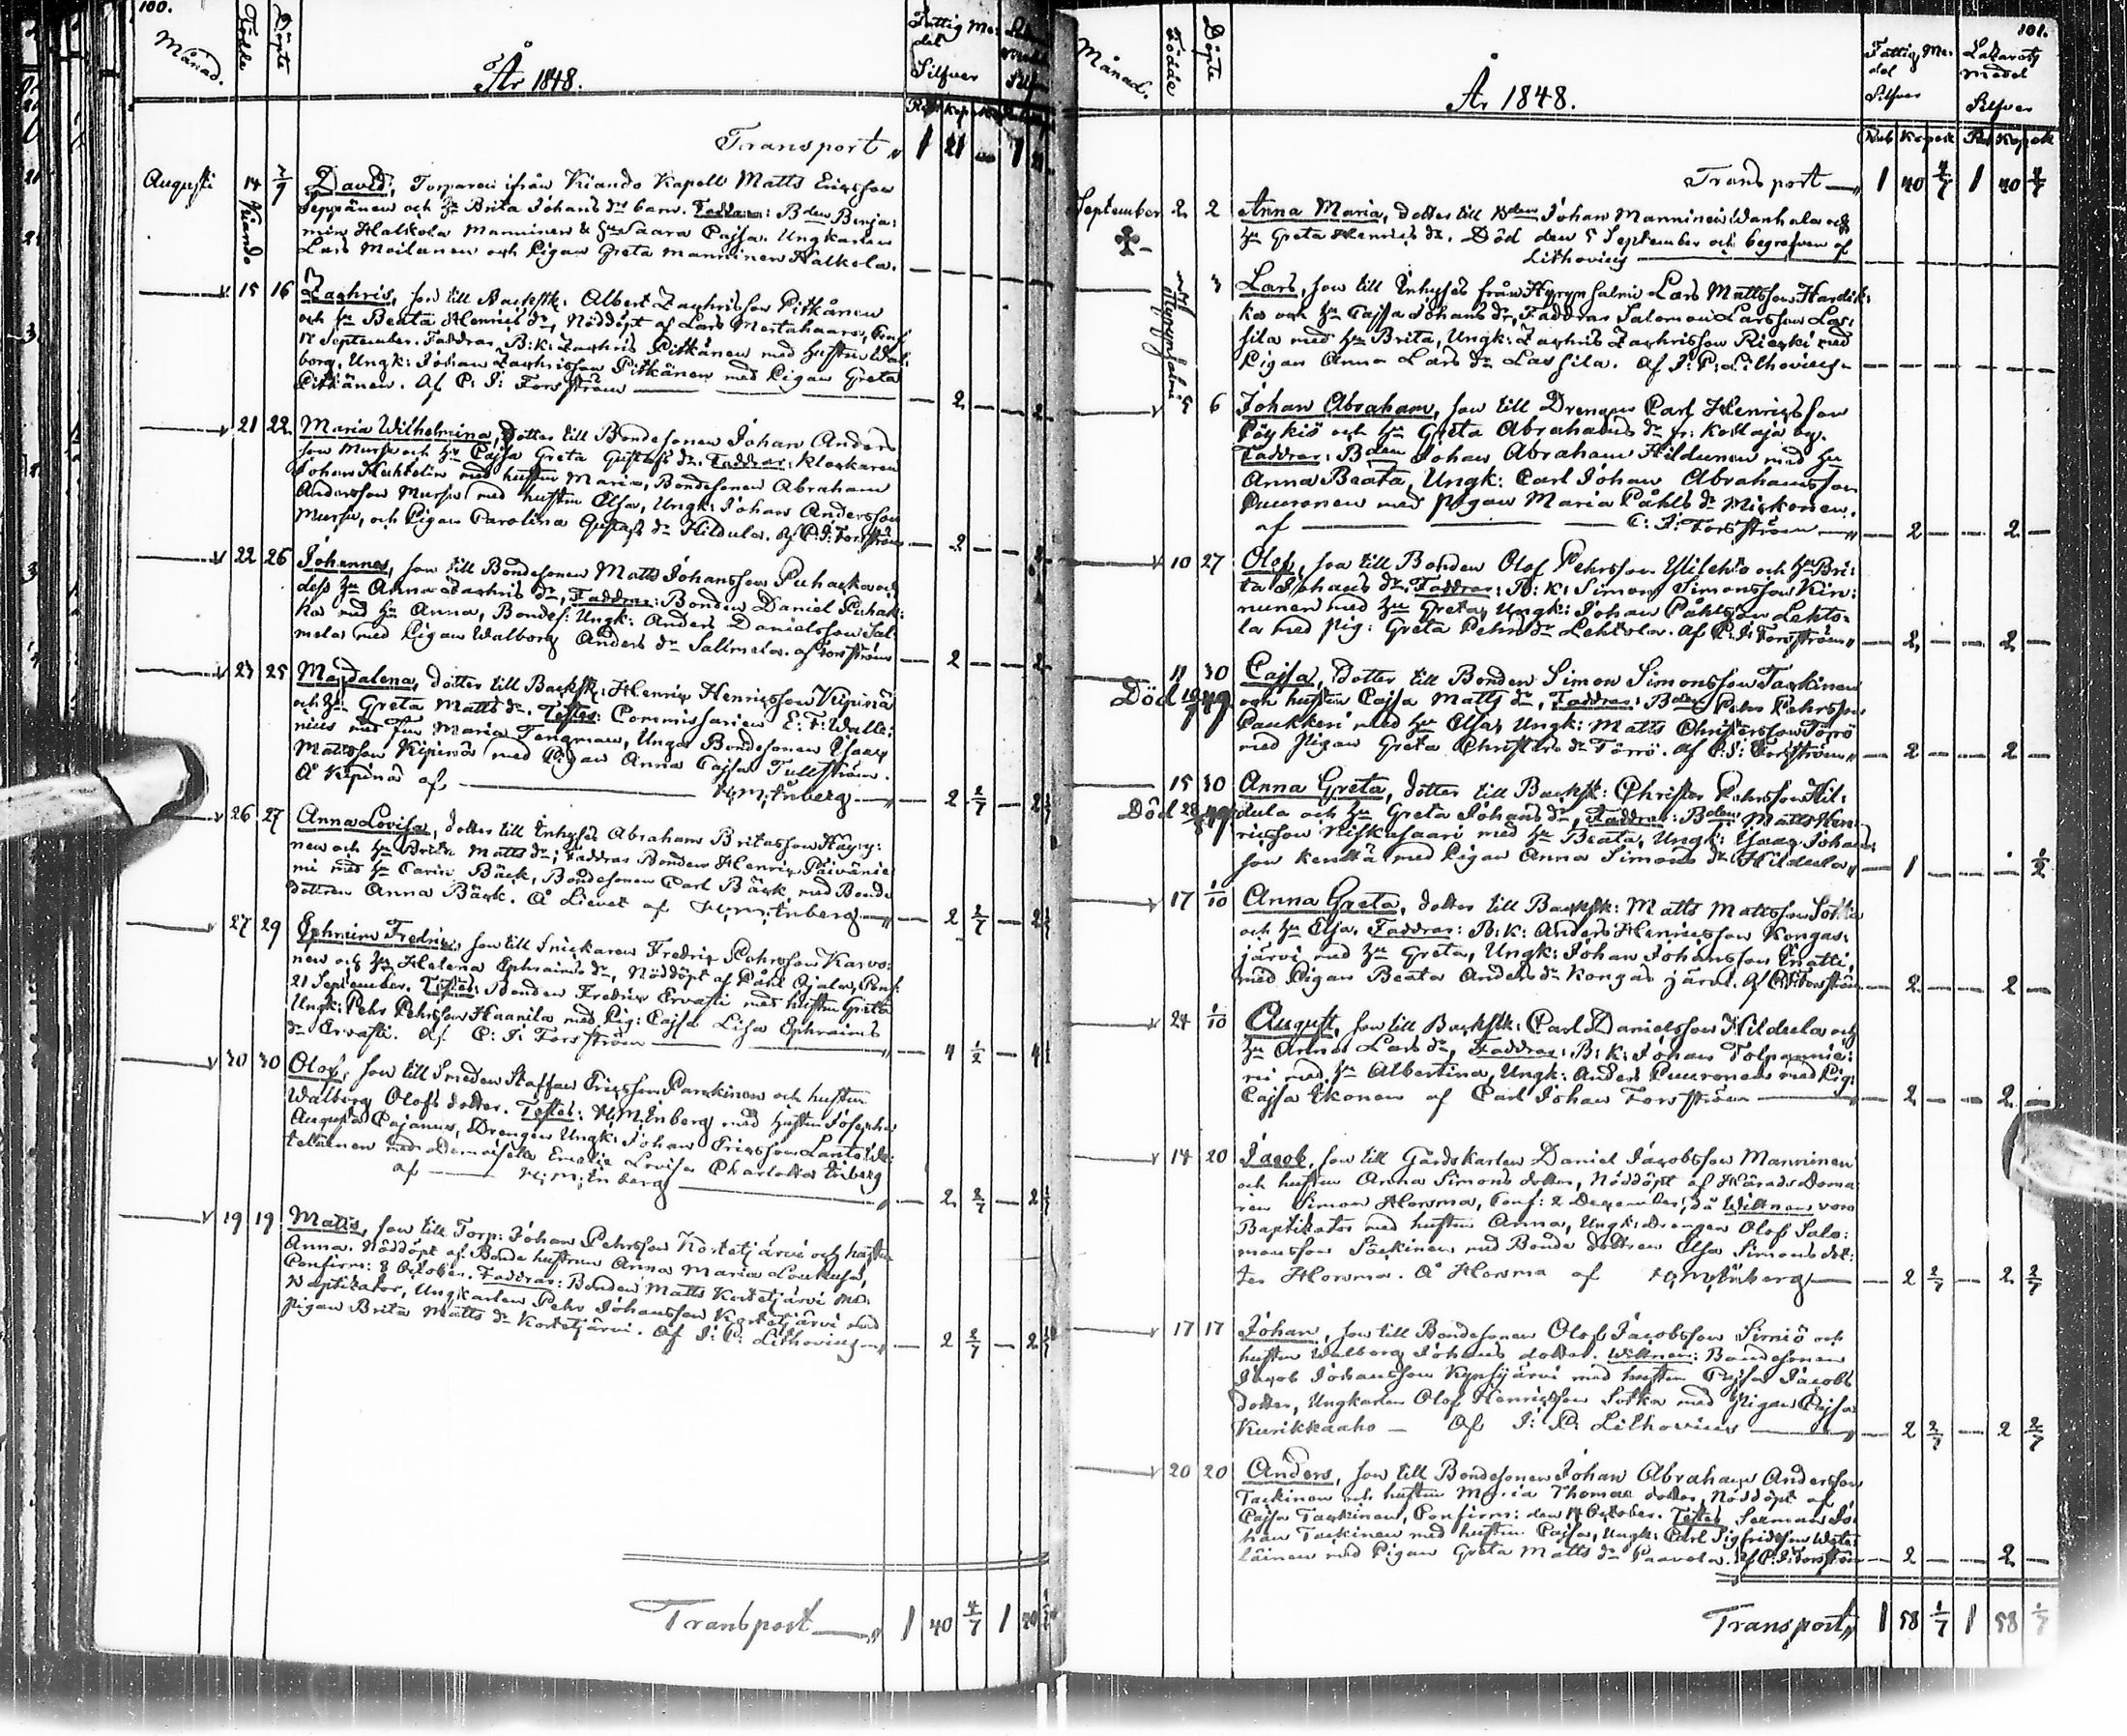 100.
Månad.
Födde
Döpte
År 1848.
Fattig Me-
del
Silfver
Transport „ 1 21
Augusti 14 2/9 David, Torparen ifrån Kiando Kapell Matts Ericsson
Kiando
Seppänen och Hu Brita Johans dr barn. Faddrar: Bden Benja:
min Halkola Manninen & Hu Saara Cajsa. Ungkarlen
Lars Moilanen och Pigan Greta Manninen Halkola.
15 16 Zachris, son till Backstk: Albert Zachrisson Pitkänen
och Hu Beata Henrics dr, Nöddöpt af Lars Mertahaara, Conf:
17 September. Faddrar, B:k: Zachris Pitkänen med hustrun Wal:
borg, Ungk: Johan Zachrisson Pitkänen med Pigan Greta
Pitkänen. Af C: J: Forsström — 2
21 22 Maria Wilhelmina, Dotter till Bondesonen Johan Anders
son Mursu och Hu Cajsa Greta Gustafs dr. Faddrar: Klockaren
Johan Huhtelin med hustrun Maria, Bondesonen Abraham
Andersson Mursu med hustrun Elsa, Ungk: Johan Andersson
Mursu, och Pigan Carolina Gustafs dr Hildula. Af C: J: Forsström 2
22 26 Johannes, son till Bondesonen Matts Johansson Puhakka och
dess Hu Anna Zachris dr, Faddrar: Bonden Daniel Puhak:
ka med Hu Anna, Bondes: Ungk: Anders Danielsson Sal
mela med Pigan Walborg Anders dr Sallmela. af Forsström 2
23 25 Magdalena, dotter till Backstk: Henric Henricsson Kipinä
och Hu: Greta Matts dr. Testes: Commissarien E: F: Walle:
nius med Fru Maria Tengman, Unga Bondesonen Isaac
Mattsson Kipinä med Pigan Anna Cajsa Tullström.
Å Kipinä af H: M: Enberg 2 2/7
26 27 Anna Lovisa, dotter till Inhyses Abraham Britasson Häyry:
nen och Hu Brita Matts dr; Faddrar Bonden Henric Päivänie
mi med Hu Carin Bäck, Bondesonen Carl Bäck med Bonde
dottren Anna Bäck. Å Lievet af H: M: Enberg 2 2/7
27 29 Ephraim Fredric, son till Snickaren Fredric Pehrsson Karvo:
nen och Hu Helena Ephraims dr, Nöddöpt af Påhl Ojala, Conf:
21 September. Testes: Bonden Fredric Ervasti med hustrun Greta
Ungk: Pehr Pehrsson Haanila med Pig: Cajsa Lisa Ephraims
dr Ervasti. Af C: J: Forsström 4 1/2
30 30 Olof, son till Smeden Staffan Ericsson Parckinen och hustrun
Walborg Olofs dotter. Testes: H: M: Enberg med hustrun Josephina
Augusta Cajanus, Drengen Ungk: Johan Ericsson
med Mademoiselle Emelie Lovisa Charlotta Enberg
af H: M: Enberg 2 2/7
19 19 Matts, son till Torp: Johan Pehrsson Kortetjärvi och hustrun
Anna. Nöddöpt af Bonde hustrun Anna Maria Loukusa,
Confirm: 8 October. Faddrar: Bonden Matts Kortetjärvi med
Baptikator, Ungkarlen Pehr Johansson Kortetjärvi med
Pigan Brita Matts dr Kortetjärvi. Af J: P: Lithovius 2 2/7
Transport „ 1 40 4/7 1 40
101.
Månad.
Födde
Döpte
År 1848.
Fattig Me-
del
Silfver
Lazarets
Medel
Silfver
Rub Kopek Rub Kopek
Transport „ 1 40 4/7 1 40 4/7
September 2 2 Anna Maria, dotter till Bden Johan Manninen Wanhala och
Hu Greta Henrics dr. Död den 5 September och begrafven af
Lithovius
3 Lars, son till Inhyses från Hyrynsalmi Lars Mattsson Hardik:
Hyrynsalmi
ka och Hu Cajsa Johans dr, Faddrar Salomon Larsson Las:
sila med Hu Brita, Ungk: Zachris Zachrisson Riecki med
Pigan Anna Lars dr Lassila. Af J: P: Lithovius
5 6 Johan Abraham, son till Drengen Carl Henricsson
Pöykiö och Hu Greta Abrahams dr fr: Kottaja by.
Faddrar: Bden Johan Abraham Hildunen med Hu
Anna Beata, Ungk: Carl Johan Abrahamsson
Puuronen med Pigan Maria Påhls dr Mickonen.
af C: J: Forsström 2 — 2 —
10 27 Olof, son till Bonden Olof Pehrsson Ylilehto och Hu Bri:
ta Johans dr. Faddrar: B: k: Simon Simonsson Kin:
nunen med Hu Greta, Ungk: Johan Påhlsson Lehto-
la med Pig: Greta Pehrs dr Lehtola. Af C: J: Forsström 2 — 2 —
11 30 Cajsa, Dotter till Bonden Simon Simonsson Tackinen
Död 49 och hustrun Cajsa Matts dr, Faddrar: Bden Pehr Pehrsson
Paukkeri med Hu Elsa, Ungk: Matts Christersson Törrö
med Pigan Greta Christers dr Törrö. Af C: J: Forsström 2 — 2 —
15 30 Anna Greta, dotter till Backstk: Christer Pehrsson Hil:
Död 49 dula och Hu Greta Johans dr, Faddrar: Bden Matts Hen:
ricsson Niskasaari med Hu Beata, Ungk: Isaac Johans
son Kenttä med Pigan Anna Simons dr Hildula 1 — — 1/2
17 1/10 Anna Greta, dotter till Backstk: Matts Mattsson Sotka
och Hu Elsa. Faddrar: B: k: Anders Henricsson Kongas:
järvi med Hu Greta, Ungk: Johan Johansson
med Pigan Beata Anders dr Kongas järvi. Af C: J: Forsström 2 — 2 —
24 1/10 August, son till Backstk: Carl Danielsson Hildula och
Hu Anna Lars dr, Faddrar: B: k: Johan Tolpannie:
mi med Hu Albertina, Ungk: Anders Puuronen med Pig:
Cajsa Ekonen af Carl Johan Forsström 2 — 2 —
14 20 Jacob, son till Gårdskarlen Daniel Jacobsson Manninen
och hustrun Anna Simons dotter, Nöddöpt af Härads Doma
ren Simon Horsma, Conf: 2 December, då Wittnen voro
Baptikator med hustrun Anna, Ungk: drengen Olof Salo:
monsson Säckinen med Bonde dottren Elsa Simons dot:
ter Horsma. Å Horsma af H: M: Enberg 2 2/7 — 2 2/7
17 17 Johan, son till Bondesonen Olof Jacobsson Simiö och
hustrun Walborg Johans dotter. Wittnen: Bondesonen
Jacob Johansson Kynsijärvi med hustrun Cajsa Jacobs
dotter, Ungkarlen Olof Henricsson Sotka med Pigan Cajsa
Kurikkaaho — Af J: P: Lithovius 2 2/7 — 2 2/7
20 20 Anders, son till Bondesonen Johan Abraham Andersson
Tackinen och hustrun Maria Thomae dotter, Nöddöpt af
Cajsa Tackinen, Confirm: den 17 October. Testes Sexman Jo:
han Tackinen med hustrun Cajsa, Ungk: Carl Sigfridsson Wäte:
läinen med Pigan Greta Matts dr Paavola. Af C: J: Forsström 2 — 2 —
Transport „ 1 58 1/7 1 58 1/7